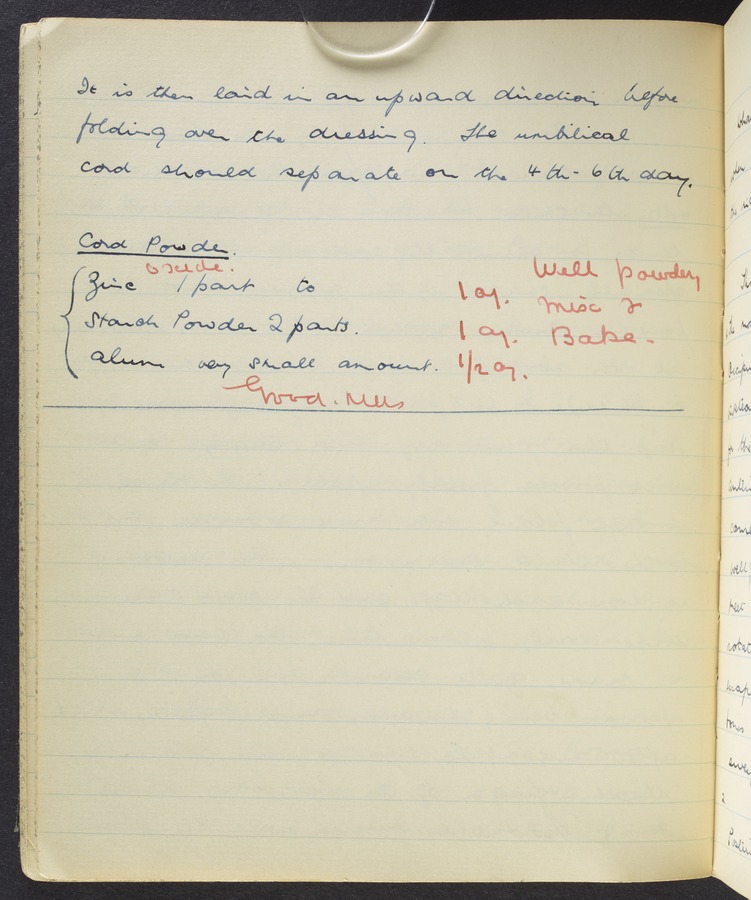 It is then laid in an upward direction before
folding over the dressing. The umbilical
cord should separate on the 4th-6th day.
Cord Powder.
oxide.
Zinc 1 part to 1 oz. Well powder,
Starch Powder 2 parts. 1 oz. mix &
alum very small amount. 1/2 oz. Bake.
Good.